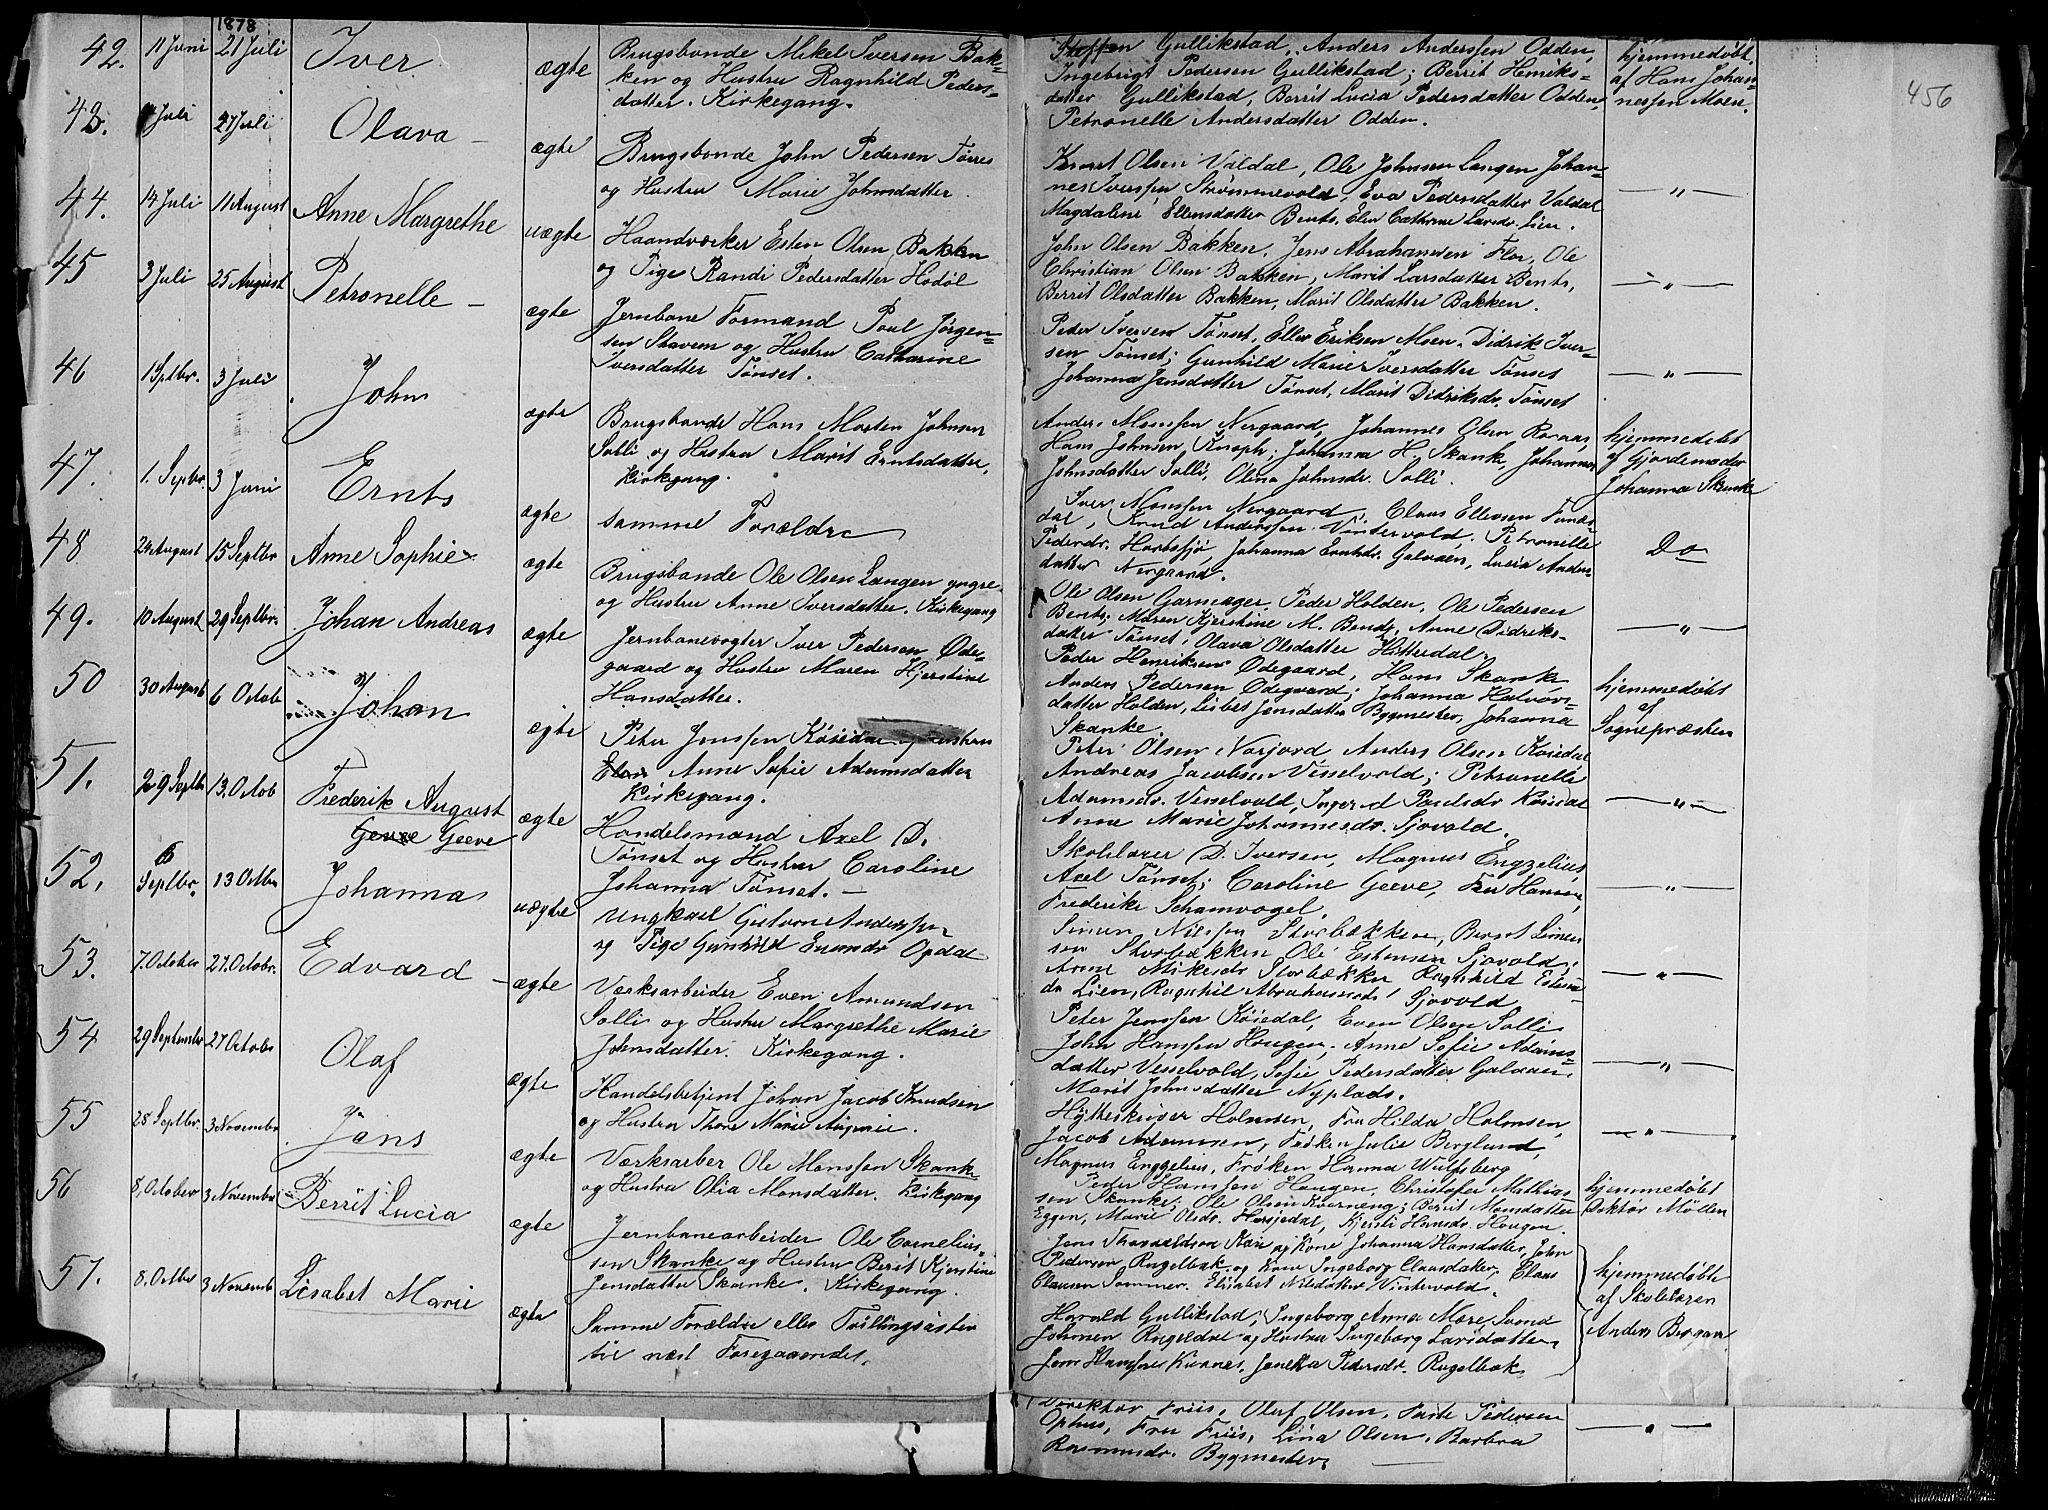 1878
456
42. 11 Juni 21 Juli Iver ægte
Brugsbonde Mikel Iversen Bak-
ken og Hustru Ragnhild Peders-
datter. Kirkegang.
Gullikstad, Anders Anderssen Odden,
Ingebrigt Pedersen Gullikstad; Berrit Henriks-
datter Gullikstad, Berrit Lucia Pedersdatter Odden,
Petronelle Andersdatter Odden.
hjemmedøbt
af Hans Johan-
nessen Moen.
43. Juli 27 Juli Olava – ægte
Brugsbonde John Pedersen Tørres
og Hustru Marie Johnsdatter
Olsen Valdal, Ole Johnsen Langen Johan-
nes Iverssen Strømmevold, Eva Pedersdatter Valdal
Magdalene Ellensdatter Bents, Elen Cathrine Larsdr. Lien.
— " —
44. 14 Juli 11 August Anne Margrethe uægte
Haandværker Esten Olsen Bakken
og Pige Randi Pedersdatter Hodøl
John Olsen Bakken, Jens Abrahamsen Flor, Ole
Christian Olsen Bakken, Marit Larsdatter Bents,
Berrit Olsdatter Bakken, Marit Olsdatter Bakken.
— " —
45 3 Juli 25 August Petronelle – ægte
Jernbane Formand Poul Jørgen-
sen Stavem og Hustru Catharine
Iversdatter Tønset.
Peder Iversen Tønset, Ellev Eriksen Moen, Didrik Iver-
sen Tønset; Gunhild Marie Iversdatter Tønset
Johanna Jensdatter Tønset, Marit Didriksdr. Tønset
— " —
46 1 Septbr. 3 Juli John ægte
Brugsbonde Hans Morten Johnsen
Solli og Hustru Marit Erntsdatter,
Kirkegang.
Anders Monssen Nergaard, Johannes Olsen
Hans Johnsen Knoph; Johanna H. Skank, Johanna
Johnsdatter Solli, Olina Johnsdr. Solli.
hjemmedøbt
af Gjordemoder
Johanna Skanke
47. 1. Sepbr. 3 Juni Ernts ægte
samme Forældre
Iver Monssen Nergaard, Claus Ellevsen
dal, Knud Anderssen Vintervold, Petronelle
Pedersdr. Hortsjø, Johanna Erntsdr. Galvaen, Lucia Anders
datter Nergaard.
Do
48 24 August 15 Septbr Anne Sophie ægte
Brugsbonde Ole Olsen Langen yngre
og Hustru Anne Iversdatter. Kirkegang
Ole Olsen Garmager, Peder Holden, Ole Pedersen
Bents. Maren Kjerstine M. Bents, Anne Didriks-
datter Tønset, Olava Olsdatter Hitterdal
— " —
49. 10 August 29 Septbr. Johan Andreas ægte
Jernbanevogter Iver Pedersen Øde-
gaard og Hustru Maren Kjerstine
Hansdatter.
Peder Henriksen Ødegaard, Hans Skank
Anders Pedersen Ødegaard; Johanna Halvor-
datter Holden, Lisbet Jensdatter Bygmester, Johanna
Skanke.
hjemmedøbt
af
Sognepræsten
50 30 August 6 Octob Johan ægte
Peter Jenssen Køsedal og Hustru
Anne Sofie Adamsdatter
Kirkegang.
Peter Olsen Norjord Anders Olsen Køsedal
Andreas Jacobsen Vesselvold; Petronelle
Adamsdr. Vesselvold, Ingerd Paulsdr Køsedal
Anne Marie Johannesdr. Sjovold.
— " —
51. 29 Septbr 13. Octob Frederik August
Geeve Geeve ægte
Handelsmand Axel D.
Tønset og Hustru Caroline
Johanna Tønset. –
Skolelærer D. Iversen, Magnus Engzelius,
Axel Tønset; Caroline Geeve, Fru Hansen,
Frederike Schamvogel.
— " —
52. 6 Septbr. 13 Octbr Johanna uægte
Ungkarl Anderssen
og Pige Gunhild Opdal
Simen Nilssen Storbækken, Berset Simen
sen Storbækken Ole Estensen Sjovold;
Anne Mikesdr Storbækken Ragnhild Estens-
dr Lien, Ragnhil Abrahamsdr Sjovold
— " —
53. 7. October 27. Octobr. Edvard – ægte
Værksarbeider Even Amundsen
Solli og Hustru Margrethe Marie
Johnsdatter. Kirkegang.
Peter Jenssen Køsedal, Even Olsen Solli
John Hanssen Hougen, Anne Sofie Adams-
datter Vesselvold, Sofie Pedersdatter Galvaen,
Marit Johnsdatter Nyplads.
— " —
54 29 September 27 Octobr Olaf ægte
Handelsbetjent Johan Jacob Knudsen
og Hustru Thore Marie
Hytteskriver Holmsen, Fru Hilda Holmsen,
Jacob Adamsen, Frøken Julie Berglund,
Magnus Engzelius, Frøken Hanna Wulfsberg
— " —
55 28 Septbr. 3 November Jens ægte
Værksarber Ole Monssen Skank
og Hustru Olia Monsdatter. Kirkegang
Peder Hanssen Hougen, Christofer Mathias-
sen Skanke; Ole Olsen Kværneng; Berrit Monsdatter
Eggen, Marie Olsdr. Harsjedal, Kjersti Hansdr. Hougen
hjemmedøbt
Doktor Møller
56 8. October 3 November Berrit Lucia ægte
Jernbanearbeider Ole Cornelius-
sen Skanke og Hustru Berit Kjerstine
Jensdatter Skanke. Kirkegang.
Jens og Kone Johanna Hansdatter, John
Pedersen Rugelbak og Kone Ingeborg Claasdatter, Claas
Clausen Sommer. Elisabet Nilsdatter Vintervold.
hjemmedøbt
af Skolelæreren
Anders Bergan
57. 8. Octbr 3 Novemb Lisabet Marie ægte
Samme Forældre eller Tvillingsøster
til næst Foregaaende.
Harald Gullikstad, Ingeborg Anna Svend
Johnsen Rugeldal og Hustru Ingeborg Larsdatter,
Jens Hanssen Kurnes, Jonetta Pedersdr. Rugelbak
Direktør Friis, Oluf Olsen, Pedersen
Ophus, Fru Friis, Lina Olsen, Barbra
Rasmusdr. Bygmester
— " —